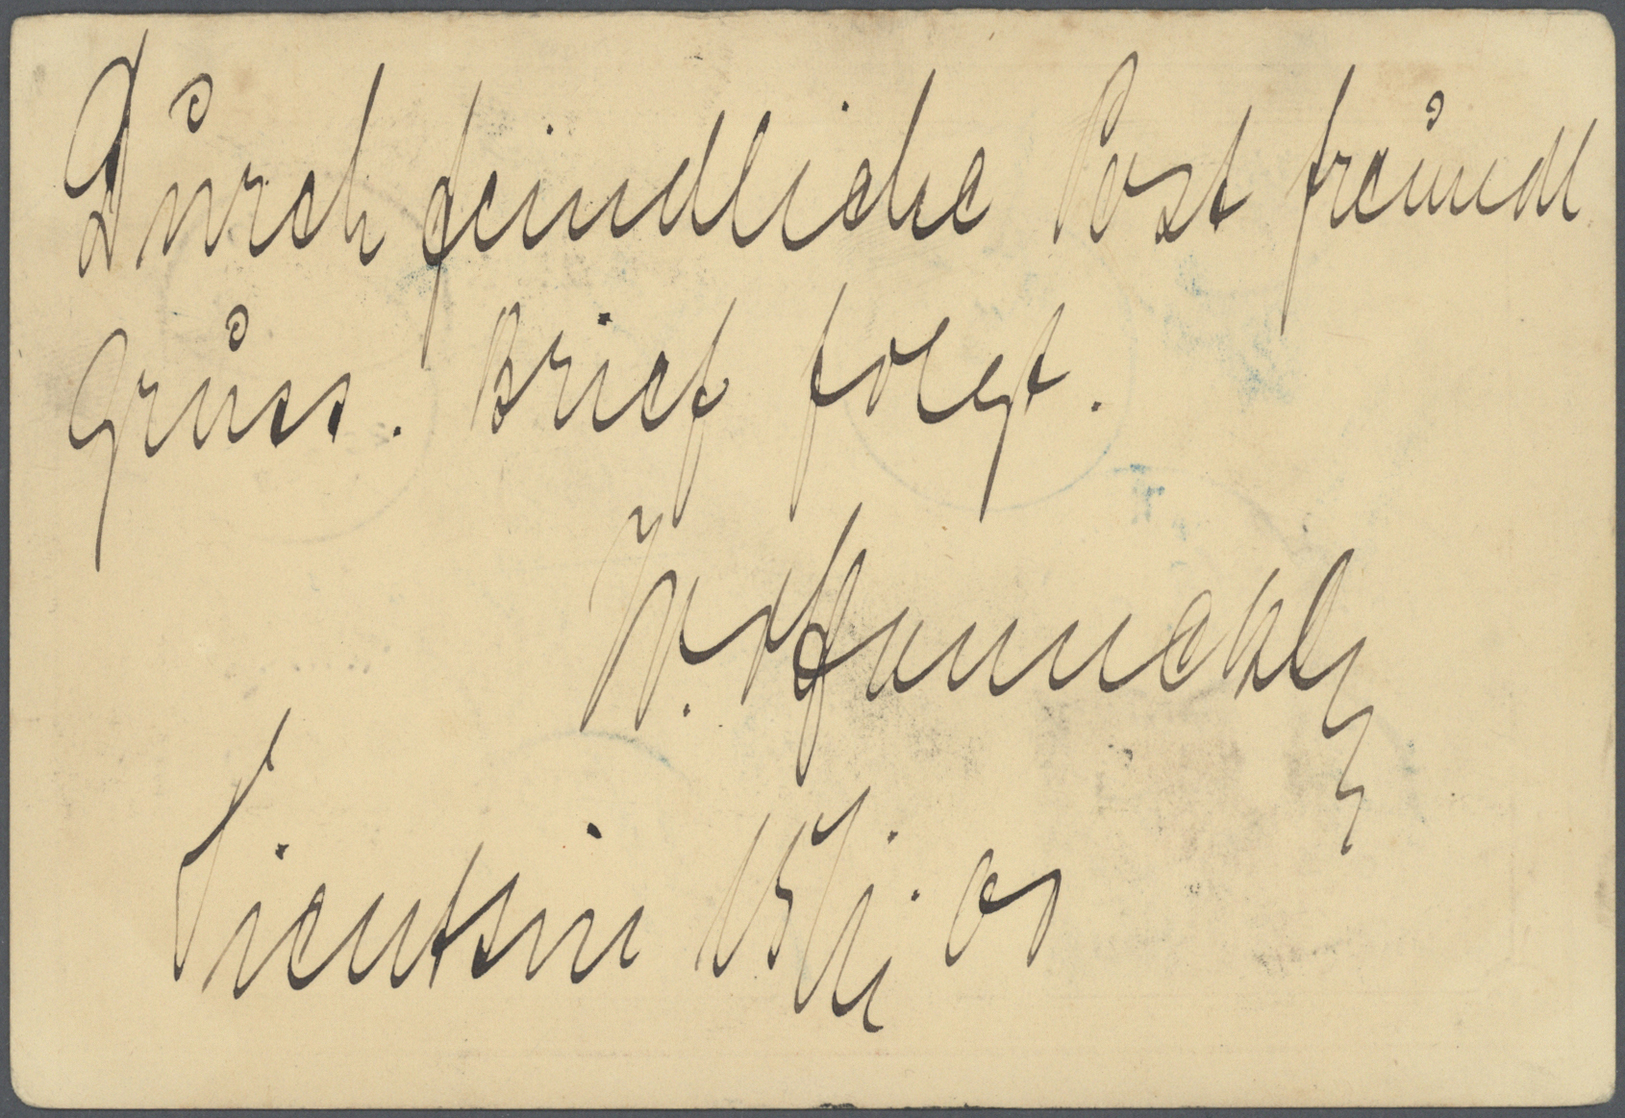 Durch feindliche Post freundl
Gruss. Brief folgt.
W.
Tientsin 15/ 01